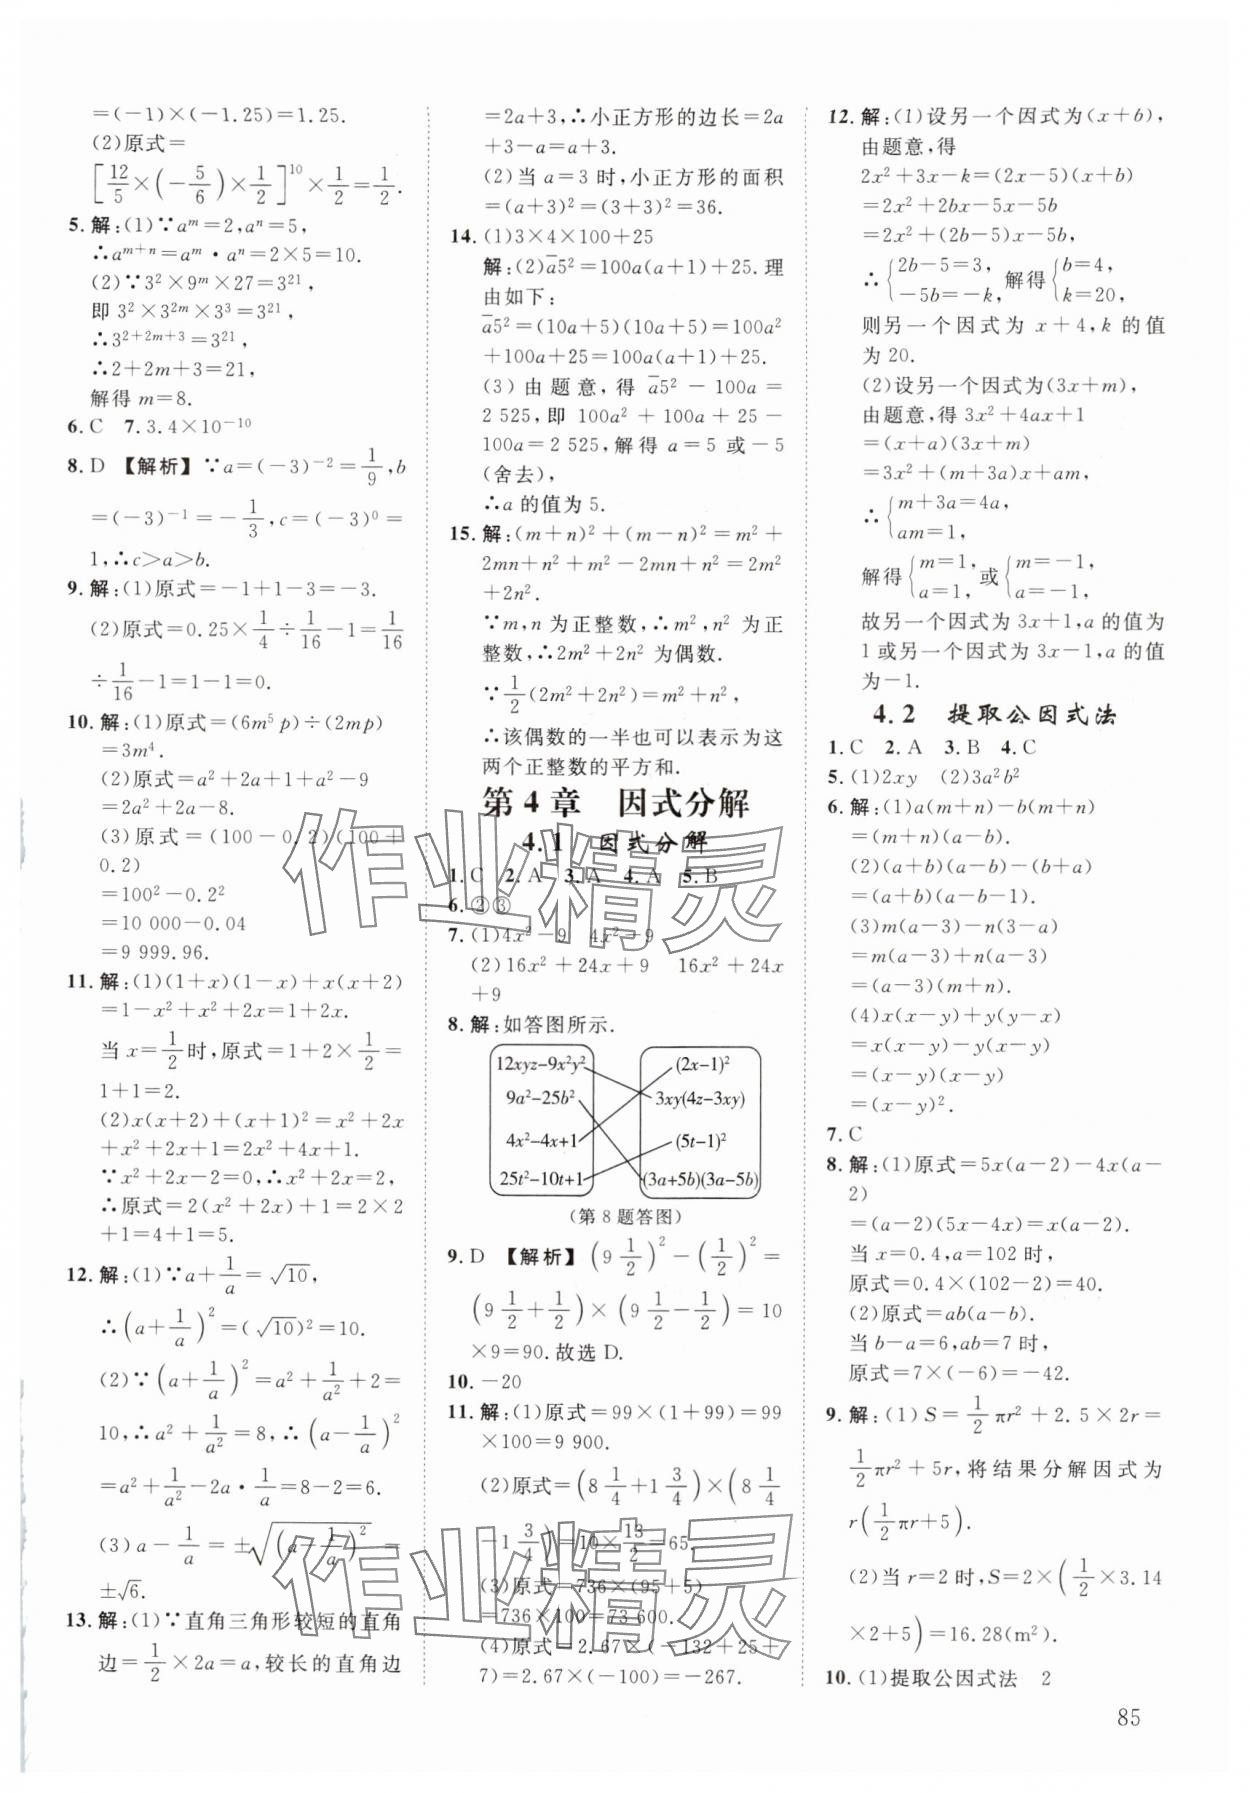 =(-1)×(-1.25)=1.25.
(2)原式=
[12/5×(-5/6)×1/2]^10×1/2=1/2.
5.解:(1)∵a^m=2,a^n=5,
∴a^(m+n)=a^m·a^n=2×5=10.
(2)∵3²×9^m×27=3^21,
即 3²×3^(2m)×3³=3^21,
∴3^(2+2m+3)=3^21,
∴2+2m+3=21,
解得 m=8.
6.C 7.3.4×10^(-10)
8.D 【解析】∵a=(-3)^(-2)=1/9,b
=(-3)^(-1)=-1/3,c=(-3)^0=
1,∴c>a>b.
9.解:(1)原式=-1+1-3=-3.
(2)原式=0.25×1/4÷1/16-1=1/16
÷1/16-1=1-1=0.
10.解:(1)原式=(6m⁵p)÷(2mp)
=3m⁴.
(2)原式=a²+2a+1+a²-9
=2a²+2a-8.
(3)原式=(100-0.2)(100+
0.2)
=100²-0.2²
=10 000-0.04
=9 999.96.
11.解:(1)(1+x)(1-x)+x(x+2)
=1-x²+x²+2x=1+2x.
当 x=1/2时,原式=1+2×1/2=
1+1=2.
(2)x(x+2)+(x+1)²=x²+2x
+x²+2x+1=2x²+4x+1.
∵x²+2x-2=0,∴x²+2x=2,
∴原式=2(x²+2x)+1=2×2
+1=4+1=5.
12.解:(1)∵a+1/a=√10,
∴(a+1/a)²=(√10)²=10.
(2)∵(a+1/a)²=a²+1/a²+2=
10,∴a²+1/a²=8,∴(a-1/a)²
=a²+1/a²-2a·1/a=8-2=6.
(3)a-1/a=±√((a-1/a)²)=
±√6.
13.解:(1)∵直角三角形较短的直角
边=1/2×2a=a,较长的直角边
=2a+3,∴小正方形的边长=2a
+3-a=a+3.
(2)当 a=3 时,小正方形的面积
=(a+3)²=(3+3)²=36.
14.(1)3×4×100+25
解:(2)a̅5²=100a(a+1)+25.理
由如下:
a̅5²=(10a+5)(10a+5)=100a²
+100a+25=100a(a+1)+25.
(3)由题意,得 a̅5²-100a=
2 525,即 100a²+100a+25-
100a=2 525,解得 a=5 或-5
(舍去),
∴a 的值为 5.
15.解:(m+n)²+(m-n)²=m²+
2mn+n²+m²-2mn+n²=2m²
+2n².
∵m,n 为正整数,∴m²,n² 为正
整数,∴2m²+2n² 为偶数.
∵1/2(2m²+2n²)=m²+n²,
∴该偶数的一半也可以表示为这
两个正整数的平方和.
第 4 章 因式分解
4.1 因式分解
1.C 2.A 3.A 4.A 5.B
6.②③
7.(1)4x²-9 4x²-9
(2)16x²+24x+9 16x²+24x
+9
8.解:如答图所示.
12xyz-9x²y² (2x-1)²
9a²-25b² 3xy(4z-3xy)
4x²-4x+1 (5t-1)²
25t²-10t+1 (3a+5b)(3a-5b)
(第 8 题答图)
9.D 【解析】(9 1/2)²-(1/2)²=
(9 1/2+1/2)×(9 1/2-1/2)=10
×9=90.故选 D.
10.-20
11.解:(1)原式=99×(1+99)=99
×100=9 900.
(2)原式=(8 1/4+1 3/4)×(8 1/4
-1 3/4)=10×13/2=65.
(3)原式=736×(95+5)
=736×100=73 600.
(4)原式=2.67×(-132+25+
7)=2.67×(-100)=-267.
12.解:(1)设另一个因式为(x+b),
由题意,得
2x²+3x-k=(2x-5)(x+b)
=2x²+2bx-5x-5b
=2x²+(2b-5)x-5b,
∴{2b-5=3, -5b=-k, 解得{b=4, k=20,
则另一个因式为 x+4,k 的值
为 20.
(2)设另一个因式为(3x+m),
由题意,得 3x²+4ax+1
=(x+a)(3x+m)
=3x²+(m+3a)x+am,
∴{m+3a=4a, am=1,
解得{m=1, a=1, 或{m=-1, a=-1,
故另一个因式为 3x+1,a 的值为
1 或另一个因式为 3x-1,a 的值
为-1.
4.2 提取公因式法
1.C 2.A 3.B 4.C
5.(1)2xy (2)3a²b²
6.解:(1)a(m+n)-b(m+n)
=(m+n)(a-b).
(2)(a+b)(a-b)-(b+a)
=(a+b)(a-b-1).
(3)m(a-3)-n(3-a)
=m(a-3)+n(a-3)
=(a-3)(m+n).
(4)x(x-y)+y(y-x)
=x(x-y)-y(x-y)
=(x-y)(x-y)
=(x-y)².
7.C
8.解:(1)原式=5x(a-2)-4x(a-
2)
=(a-2)(5x-4x)=x(a-2).
当 x=0.4,a=102 时,
原式=0.4×(102-2)=40.
(2)原式=ab(a-b).
当 b-a=6,ab=7 时,
原式=7×(-6)=-42.
9.解:(1)S=1/2πr²+2.5×2r=
1/2πr²+5r,将结果分解因式为
r(1/2πr+5).
(2)当 r=2 时,S=2×(1/2×3.14
×2+5)=16.28(m²).
10.(1)提取公因式法 2
85
作业精灵
作业精灵